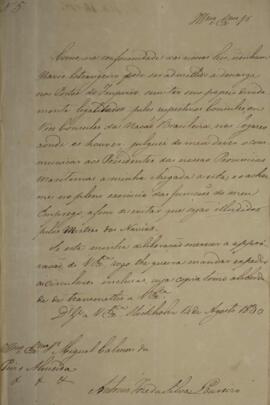 N 5
Como na conformidade das nossas leis, nenhum
Navio Estrangeiro pode ser admittido á carga
nos Portos do Imperio sem ter seus papeis devida
mente legalisados pelos respectivos Consules ou
Vice Consules da Nação Brasileira, nos logares
aonde os houver, julguei do meu dever o com
municar aos Presidentes das nossas Provincias
Maritimas a minha chegada a esta, e achar
me no pleno exercicio das funcções do meu
Emprego, afim de evitar que sejão illudidos
pelos Mestres dos Navios.
Se esta minha deliberação merecer a approva
ção de V. Exa. rogo lhe queira mandar expedir
as circulares inclusas, cuja copia tenho a liberda
de de transmetter a V. Exa.
Ds. Ge. a V. Exa. Stockholm 14 de Agosto 1830
Miguel Calmon du
Pin e Almeida
Antonio da Silva Loureiro